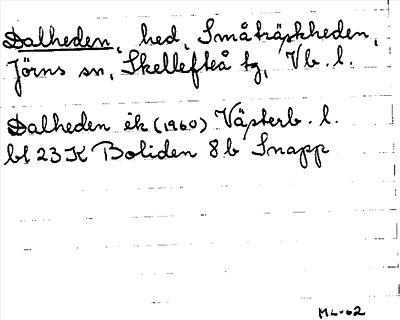 Dalheden, hed, Småträskheden,
Jörns sn, Skellefteå tg, Vb. l.
Dalheden ek (1960) Västerb. l.
bl 23 K Boliden 8 b Snapp
ML-62